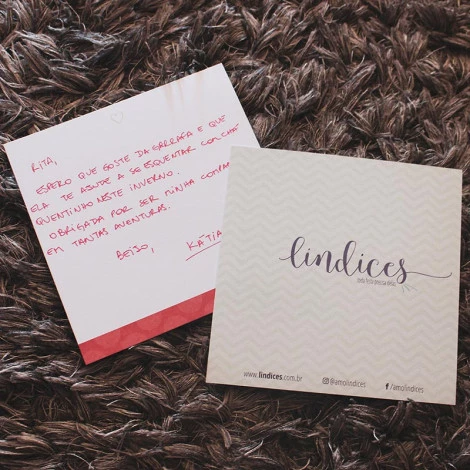 RITA,
ESPERO QUE GOSTE DA GARRAFA E QUE
ELA TE AJUDE A SE ESQUENTAR COM CHÁ
QUENTINHO NESTE INVERNO.
OBRIGADA POR SER MINHA
EM TANTAS AVENTURAS.
BEIJO,
KÁTIA
lindices
www.lindices.com.br
@amolindices
/amolindices